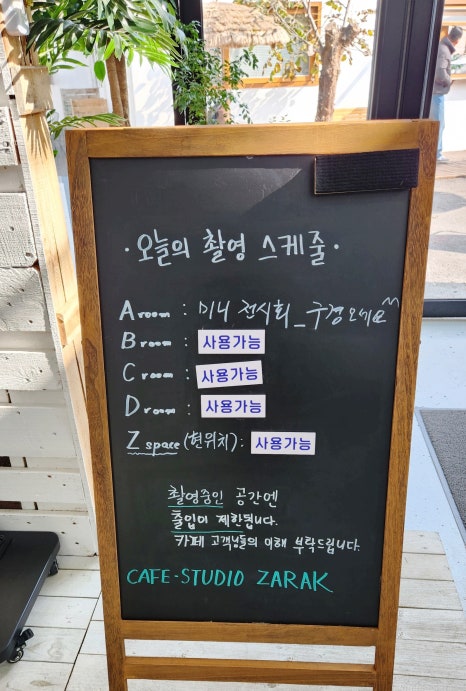 · 오늘의 촬영 스케줄 ·
A room : 미니 전시회_구경오세요^^
B room : 사용가능
C room : 사용가능
D room : 사용가능
Z space (현위치) : 사용가능
촬영중인 공간엔
출입이 제한됩니다.
카페 고객님들의 이해 부탁드립니다.
CAFE-STUDIO ZARAK